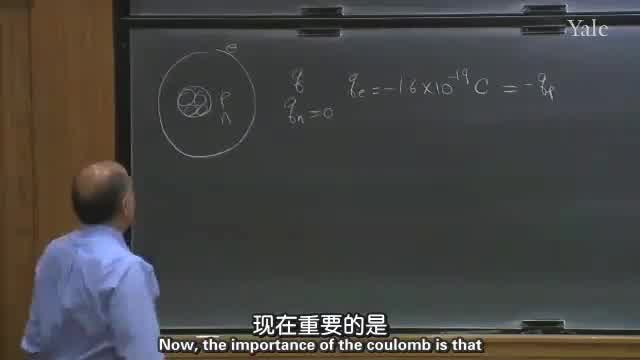 Yale
e
q
q_e = -1.6×10^-19 C = -q_p
p
n
q_n = 0
现在重要的是
Now, the importance of the coulomb is that